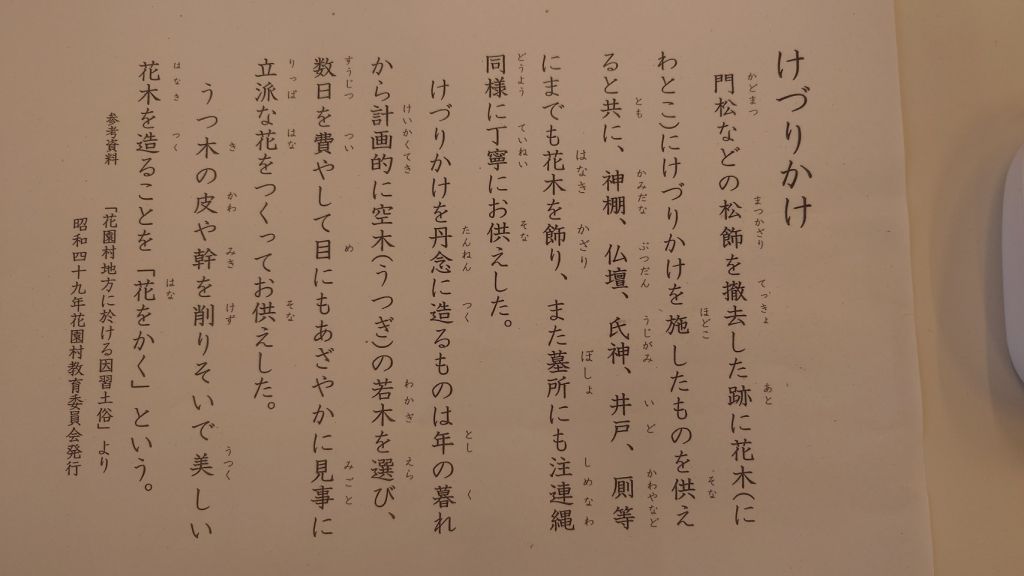 けづりかけ
門松などの松飾を撤去した跡に花木(に
わとこ)にけづりかけを施したものを供え
ると共に、神棚、仏壇、氏神、井戸、厠等
にまでも花木を飾り、また墓所にも注連縄
同様に丁寧にお供えした。
けづりかけを丹念に造るものは年の暮れ
から計画的に空木(うつぎ)の若木を選び、
数日を費やして目にもあざやかに見事に
立派な花をつくってお供えした。
うつ木の皮や幹を削りそいで美しい
花木を造ることを「花をかく」という。
参考資料 「花園村地方に於ける因習土俗」より
昭和四十九年花園村教育委員会発行